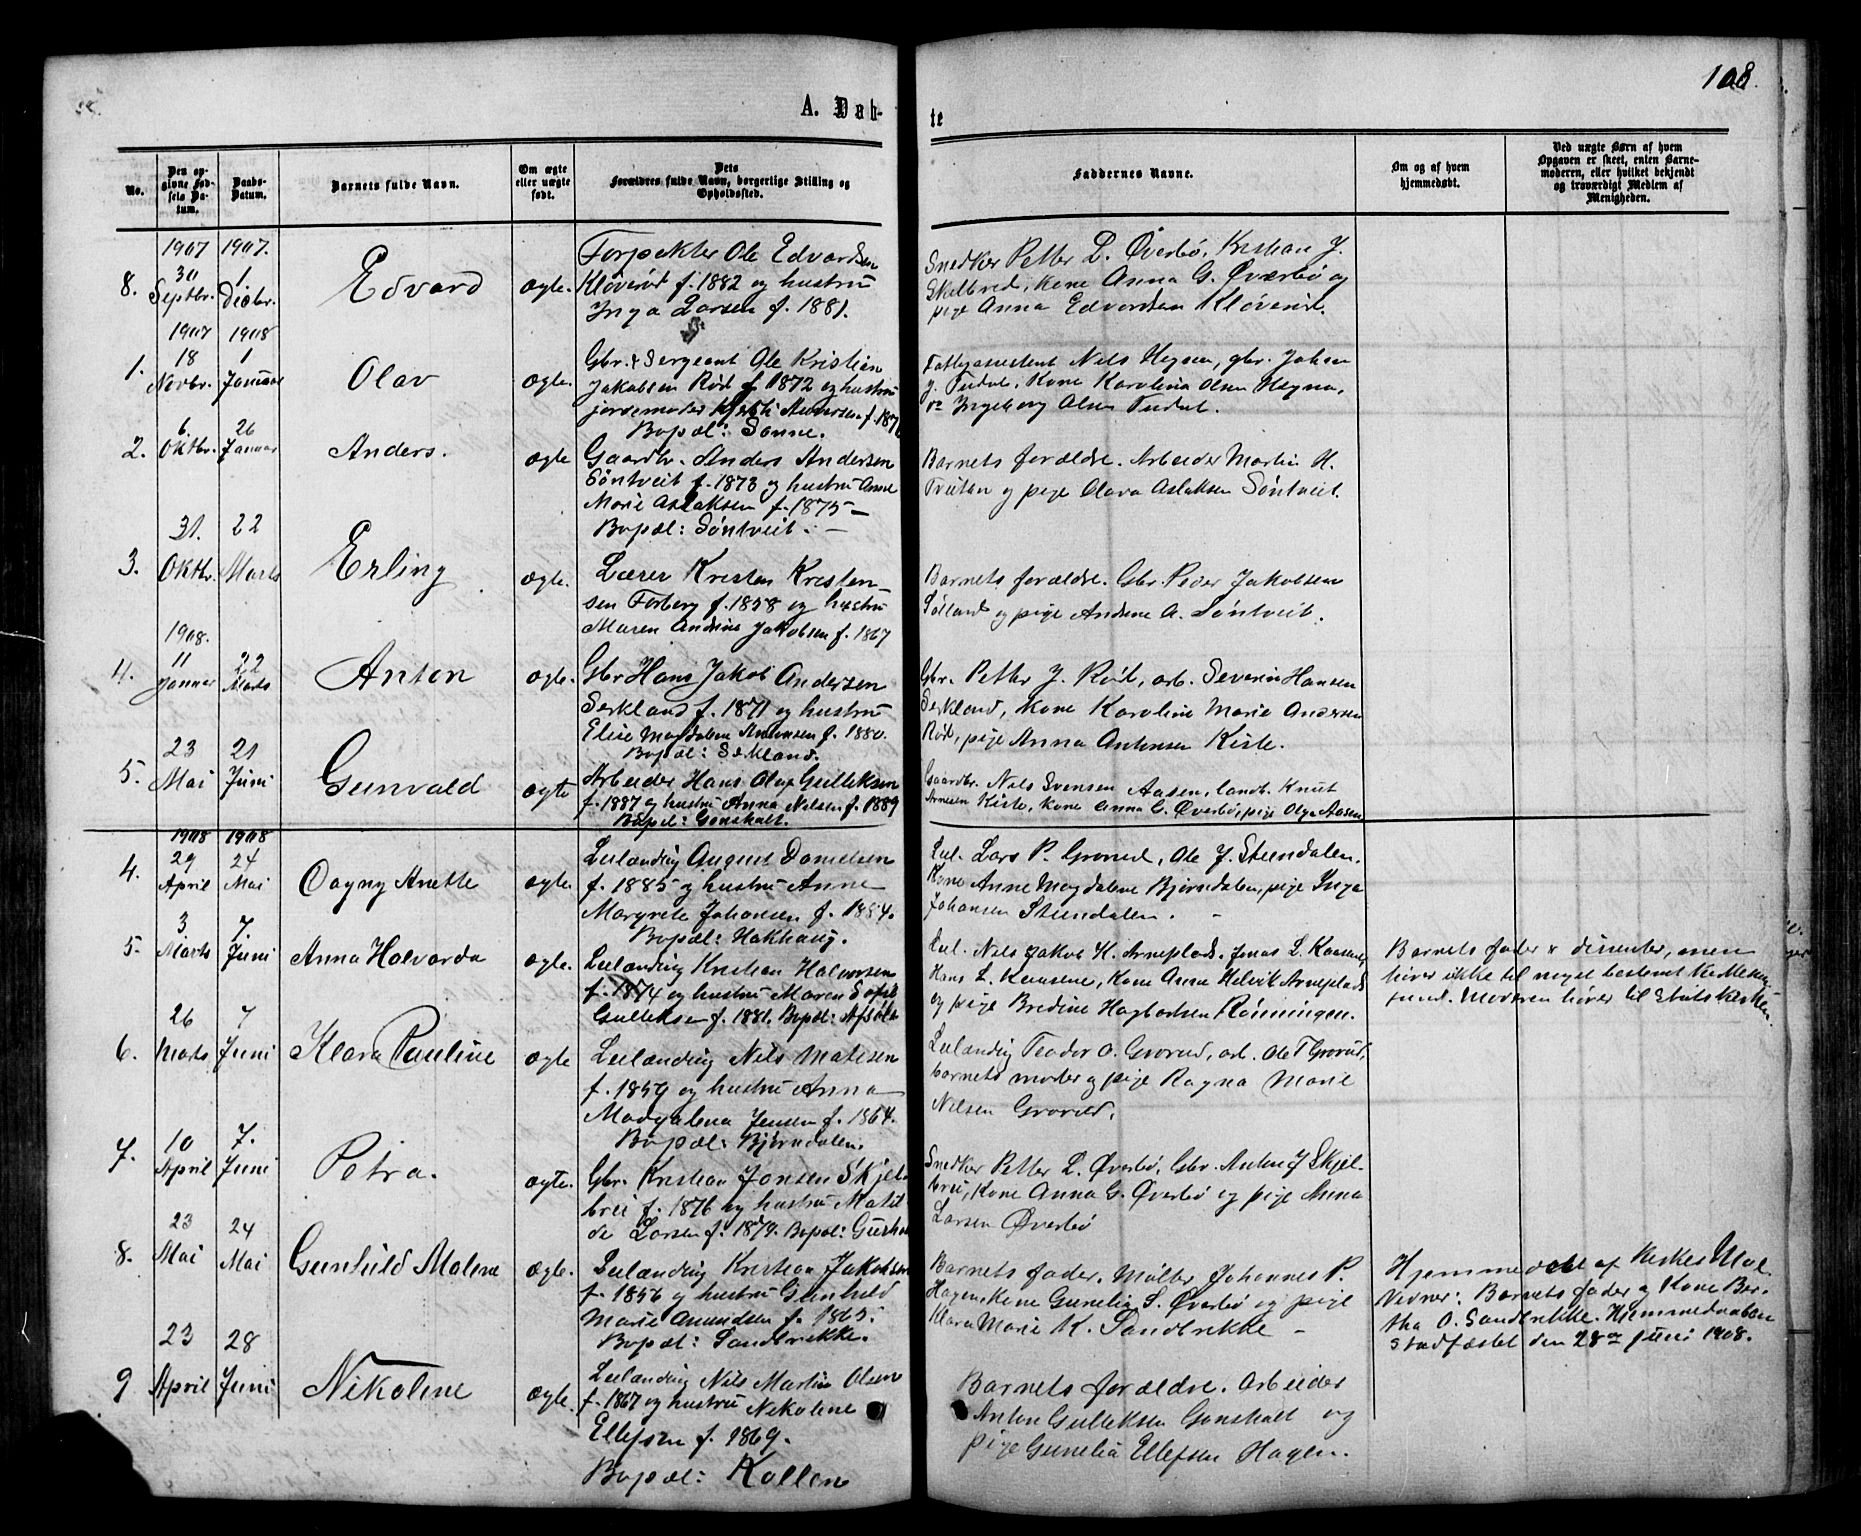 108.
A. Døb-
te
No.
Den op-
givne Fød-
sels Da-
tum.
Daabs-
Datum.
Barnets fulde Navn.
Om ægte
eller uægte
født.
Dets
Forældres fulde Navn, borgerlige Stilling og
Opholdssted.
Faddernes Navne.
Om og af hvem
hjemmedøbt.
Ved uægte Børn af hvem
Opgaven er skeet, enten Barne-
moderen, eller hvilket bekjendt
og troværdigt Medlem af
Menigheden.
8.
1907
30
Septbr.
1907.
1
Decbr.
Edvard
ægte.
Forpakter Ole Edvardsen
Kløverød f. 1882 og hustru
Inga Larsen f. 1881.
Snedker Petter L. Øverbø, Kristian J.
Skelbred, kone Anna G. Øverbø og
pige Anna Edvardsen Kløverød.
1.
1907
18
Novbr.
1908
1
Januar
Olav
ægte.
Gbr. & Sergeant Ole Kristian
Jakobsen Rød f. 1872 og hustru
jordemoder Andersen f. 187
Bopæl: Sanne.
Nils Hegna, gbr. Johan
J. Tudal, Kone Karolina Olsen Hegna,
og Ingeborg Olsen Tudal.
2.
6
Oktbr.
26
Januar
Anders.
ægte
Gaardbr. Anders Andersen
Søntveit f. 1873 og hustru Anne
Marie Aslaksen f. 1875 —
Bopæl: Søntveit. —
Barnets forældre. Arbeider Martin H.
og pige Olava Aslaksen Søntveit.
3.
31.
Oktbr.
22
Marts
Erling
ægte.
Lærer Kristen Kristen
sen Forberg f. 1858 og hustru
Maren Andrine Jakobsen f. 1867
Barnets forældre. Gbr. Peder Jakobsen
Sølland og pige Andrine A. Søntveit.
4.
1908.
11
Januar
22
Marts
Anton
ægte.
Gbr Hans Jakob Andersen
Serkland f. 1871 og hustru
Elise Magdalene Antonsen f. 1880.
Bopæl: Serkland.
Gbr. Petter J. Rød, arb. Severin Hansen
Serkland, kone Karoline Marie Andersen
Rød, pige Anna Antonsen Kiste.
5.
23
Mai
21
Juni
Gunvald
ægte
Arbeider Hans Olaf Gulleksen
f. 1887 og hustru Anna Nilsen f. 1889
Bopæl: Gonsholt.
Gaardbr. Nils Svensen Aasen, landb. Knut
Arnesen Kiste, kone Anna G. Øverbø, pige Olga Aasen
4.
1908
29
April
1908
24
Mai
Dagny Anette
ægte.
Leilænding August Danielsen
f. 1885 og hustru Anne
Margrete Johansen f. 1884.
Bopæl: Hakhaug.
Leil. Lars P. Grorud, Ole J. Stendalen.
Kone Anne Magdalene Bjørndalen, pige Inga
Johansen Stendalen. —
5.
3
Marts
7.
Juni
Anna Halvarda
ægte.
Leilænding Kristian Halvorsen
f. 1874 og hustru Maren Sofie
Gulleksen f. 1881. Bopæl:
Leil. Nils Jakob K. Arneplads. Jonas L.
Hans L. Kaasene, Kone Anne Helvik Arneplads
og pige Bredine Hagbartsen Rønningen.
Barnets fader er dissenter, men
hører ikke til noget bestemt kirkesam-
fund. Moderen hører til Statskirken.
6.
26
Marts
7
Juni
Klara Pauline
ægte
Leilænding Nils Matisen
f. 1859 og hustru Anna
Madgalena Jensen f. 1864.
Bopæl: Bjørndalen.
Leilænding Teodor O. Grorud, arb. Ole T Grorud,
barnets moder og pige Ragna Marie
Nilsen Grorud.
7.
10
April
7.
Juni
Petra.
ægte.
Gbr. Kristian Jonsen Skjel-
brei f. 1876 og hustru Matil
de Larsen f. 1879. Bopæl:
Snedker Petter L. Øverbø, Gbr. Anton J Skjel-
brei, Kone Anna G. Øverbø og pige Anna
Larsen Øverbø
8.
23
Mai
24
Mai
Gunhild Malene
ægte.
Leilænding Kristian Jakobsen
f. 1856 og hustru Gunhild
Marie Amundsen f. 1865.
Bopæl: Sandbrekke.
Barnets fader. Møller Johannes P.
Hagen, Kone Gunelia S. Øverbø og pige
Klara Marie K. Sandbrekke —
Hjemmedøbt af Kirkes.
Vidner: Barnets fader og Kone Ber-
tha O. Sandbrekke. Hjemmedaaben
stadfæstet den 28de juni 1908.
9
23
April
28
Juni
Nikoline
ægte.
Leilænding Nils Martin Olsen
f. 1867 og hustru Nikoline
Ellefsen f. 1869.
Bopæl: Kollen
Barnets forældre. Arbeider
Anton Gulleksen Gonsholt og
pige Gunelia Ellefsen Hagen.